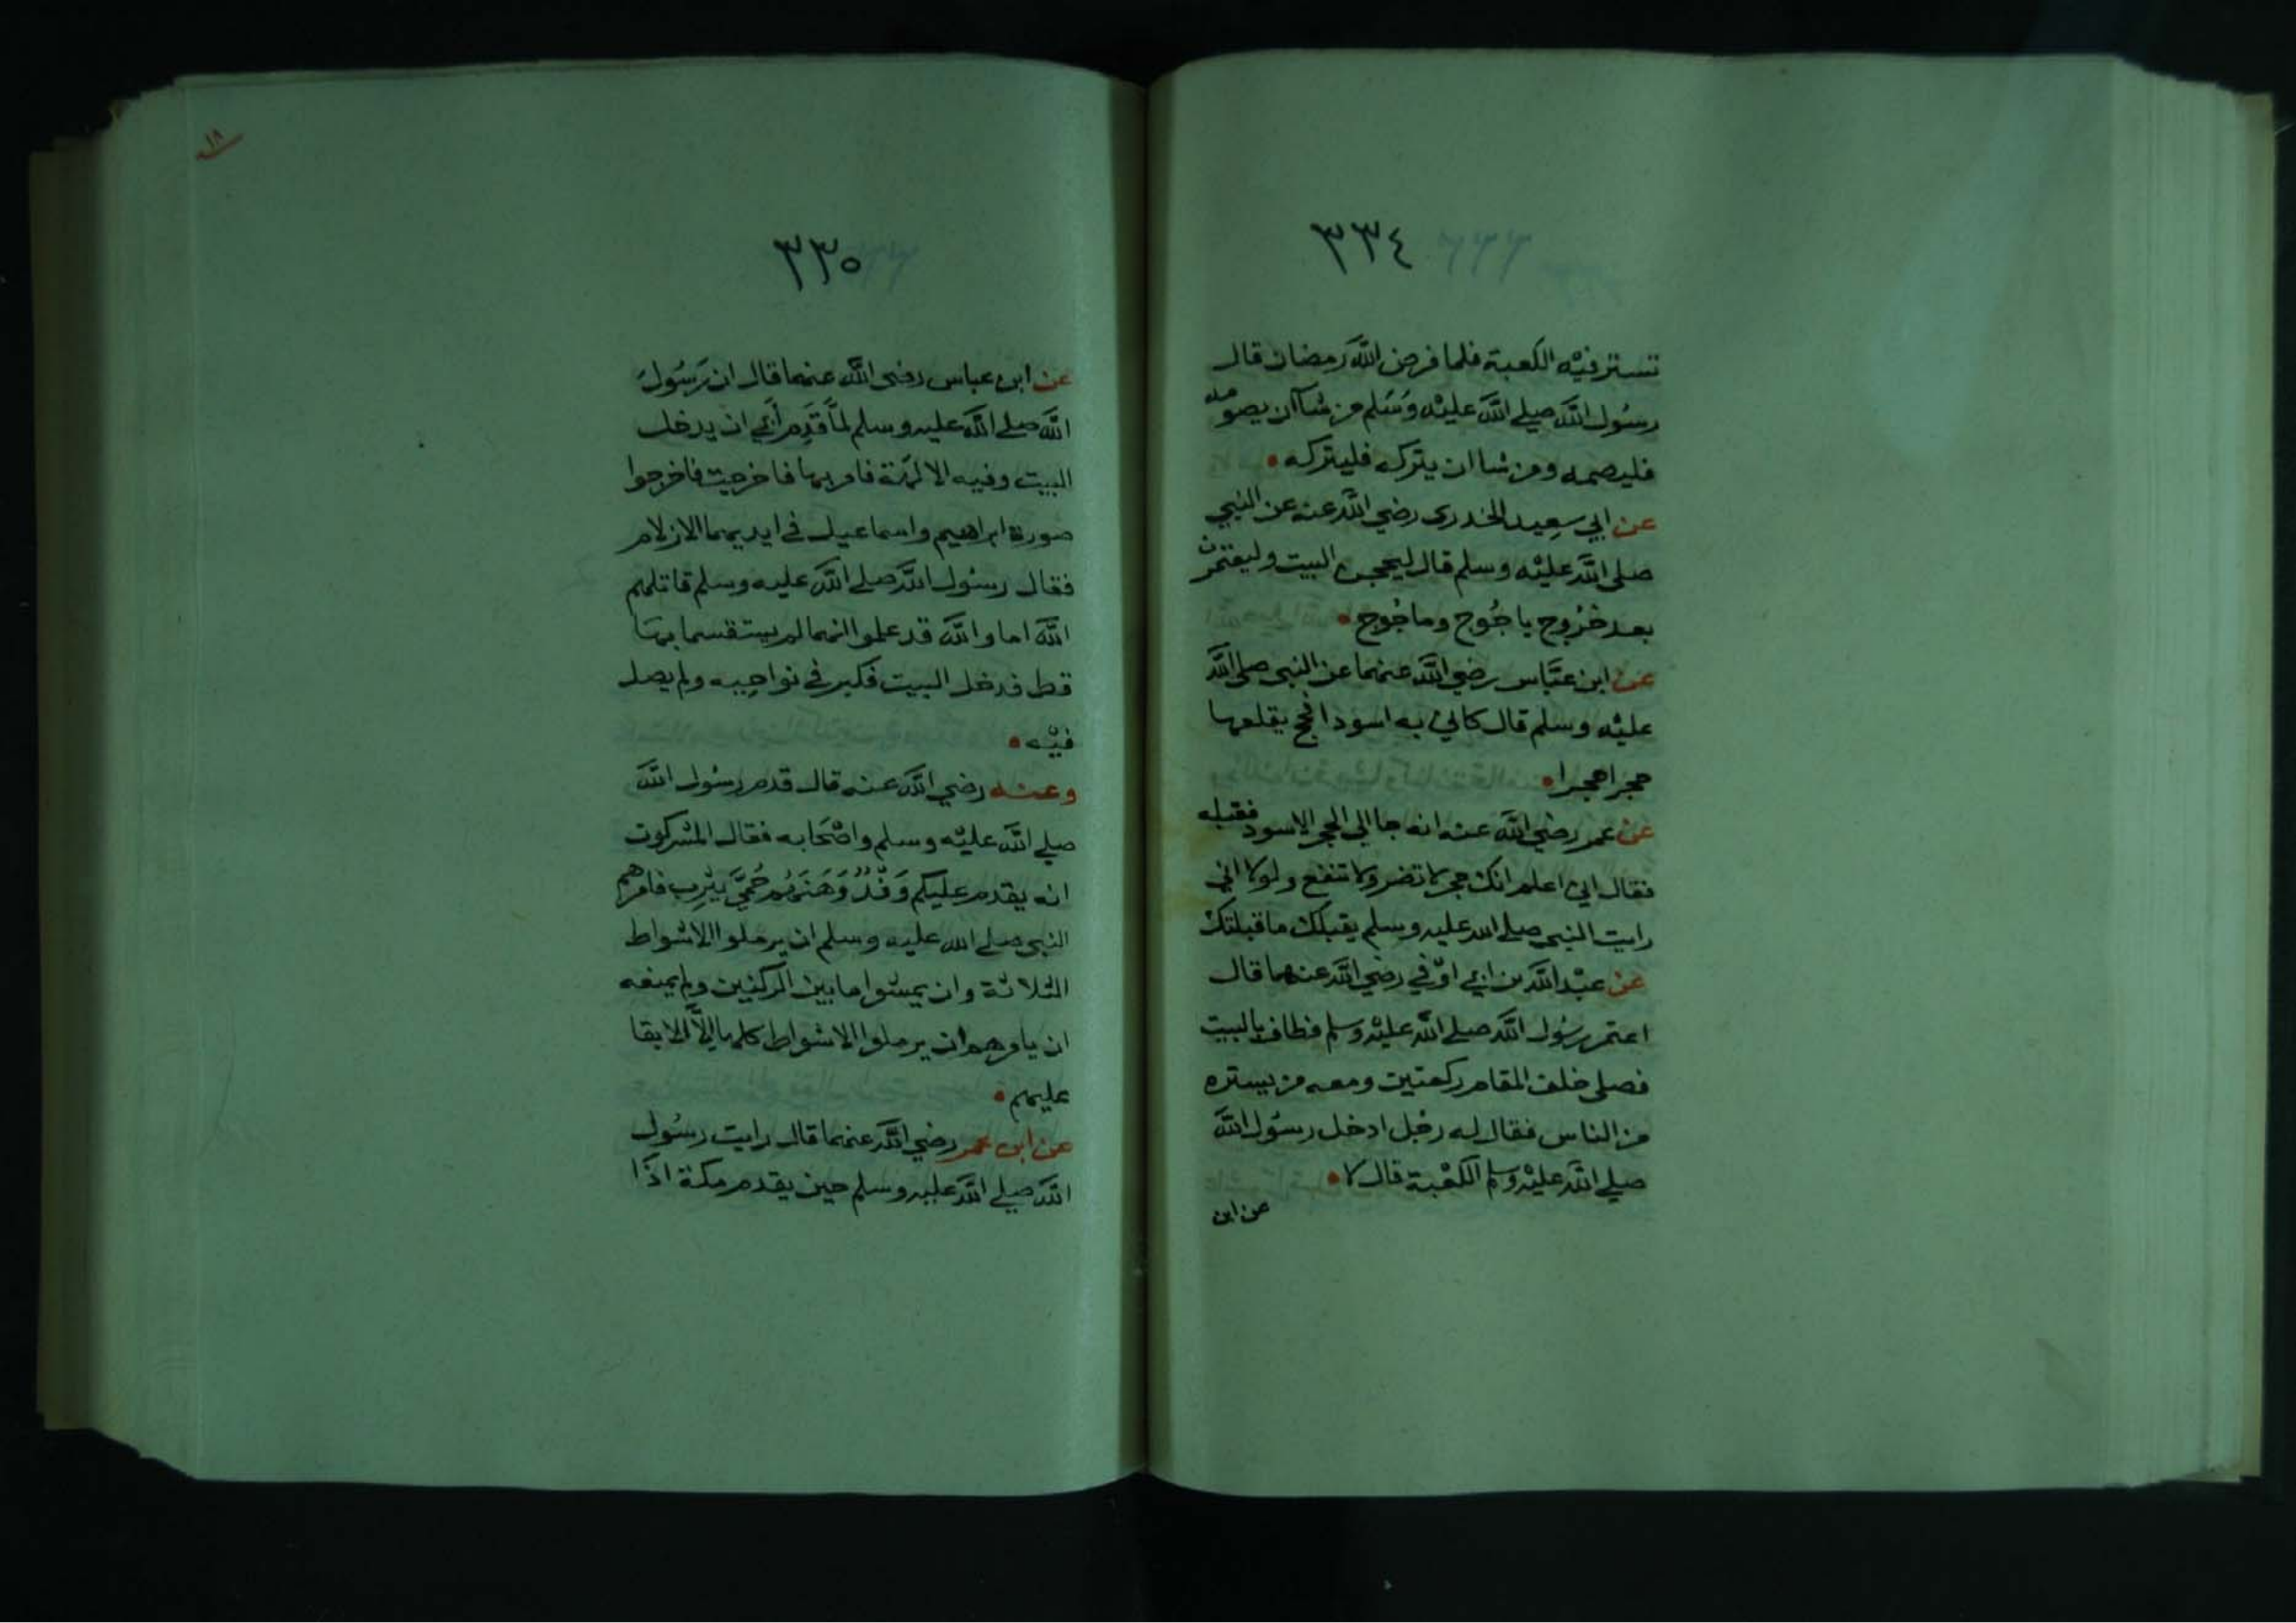 ٣٣٤
تستر فيه الكعبة فلما فرض الله رمضان قال
رسول الله صلى الله عليه وسلم من شاان يصومه
فليصمه ومن شا ان يتركه فليتركه
عن ابي سعيد الخدري رضي الله عنه عن النبي
صلى الله عليه وسلم قال ليحجن البيت وليعتمرن
بعد خروج ياجوج وماجوج
عن ابن عباس رضي الله عنهما عن النبي صلى الله
عليه وسلم قال كاني به اسود افحج يقلعها
حجرا حجرا
عن عمر رضي الله عنه انه جا الى الحجر الاسود فقبله
فقال اني اعلم انك حجر لا تضر ولا تنفع ولولا اني
رايت النبي صلى الله عليه وسلم يقبلك ما قبلتك
عن عبد الله بن ابي اوفي رضي الله عنهما قال
اعتمر رسول الله صلى الله عليه وسلم فطاف بالبيت
فصلى خلف المقام ركعتين ومعه من يستره
من الناس فقال له رجل ادخل رسول الله
صلى الله عليه وسلم الكعبة قال لا
عن ابن
١٨
٣٣٥
عن ابن عباس رضي الله عنهما قال ان رسول
الله صلى الله عليه وسلم لما قدم أبي ان يدخل
البيت وفيه الالهة فامر بها فاخرجت فاخرجوا
صورة ابراهيم واسماعيل في ايديهما الازلام
فقال رسول الله صلى الله عليه وسلم قاتلهم
الله اما والله قد علموا انهما لم يستقسما بها
قط فدخل البيت فكبر في نواحيه ولم يصل
فيه
وعنه رضي الله عنه قال قدم رسول الله
صلى الله عليه وسلم واصحابه فقال المشركون
انه يقدم عليكم وفد وهنهم حمى يثرب فامرهم
النبي صلى الله عليه وسلم ان يرملوا الاشواط
الثلاثة وان يمشوا ما بين الركنين ولم يمنعه
ان يامرهم ان يرملوا الاشواط كلها الا الابقا
عليهم
عن ابن عمر رضي الله عنهما قال رايت رسول
الله صلى الله عليه وسلم حين يقدم مكة اذا